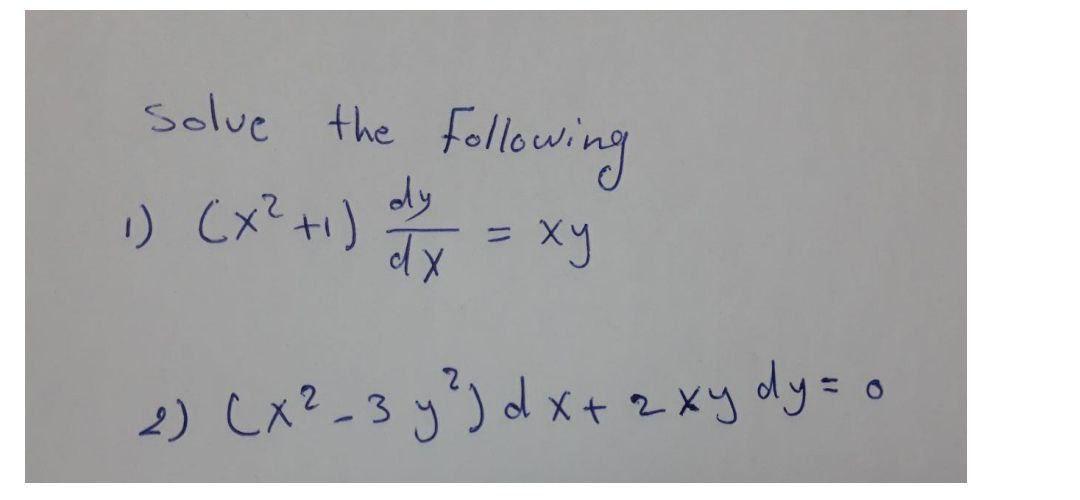 Solve the following
1) (x² + 1) dy/dx = xy
2) (x² - 3 y²) dx + 2 xy dy = 0